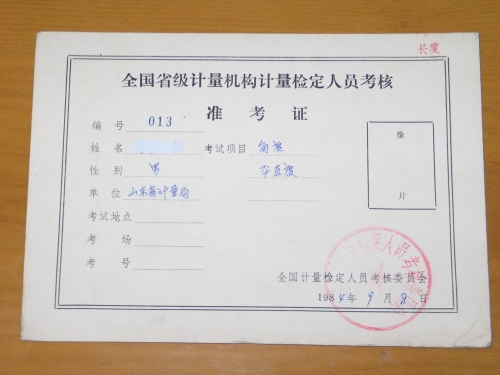 长度
全国省级计量机构计量检定人员考核
准考证
编号 013
姓名 考试项目
性别 男 平直度
单位 山东省计量局
考试地点
考场
考号
像片
全国计量检定人员考核委员会
1984年9月8日